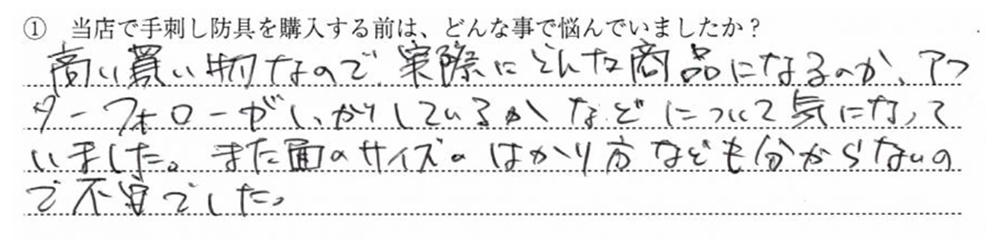 ① 当店で手刺し防具を購入する前は、どんな事で悩んでいましたか？
高い買い物なので、実際にどんな商品になるのか、アフ
ターフォローがしっかりしているかなどについて気になって
いました。また面のサイズのはかり方なども分からないの
で不安でした。